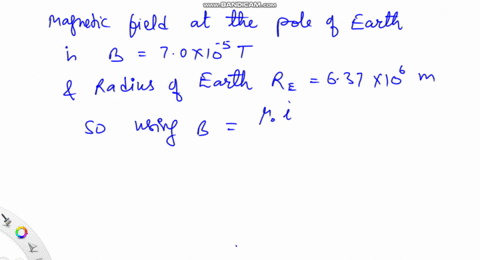 www.BANDICAM.com
Magnetic field at the pole of Earth
is B = 7.0×10⁻⁵ T
& Radius of Earth R_E = 6.37 ×10⁶ m
so using B = μ₀ i